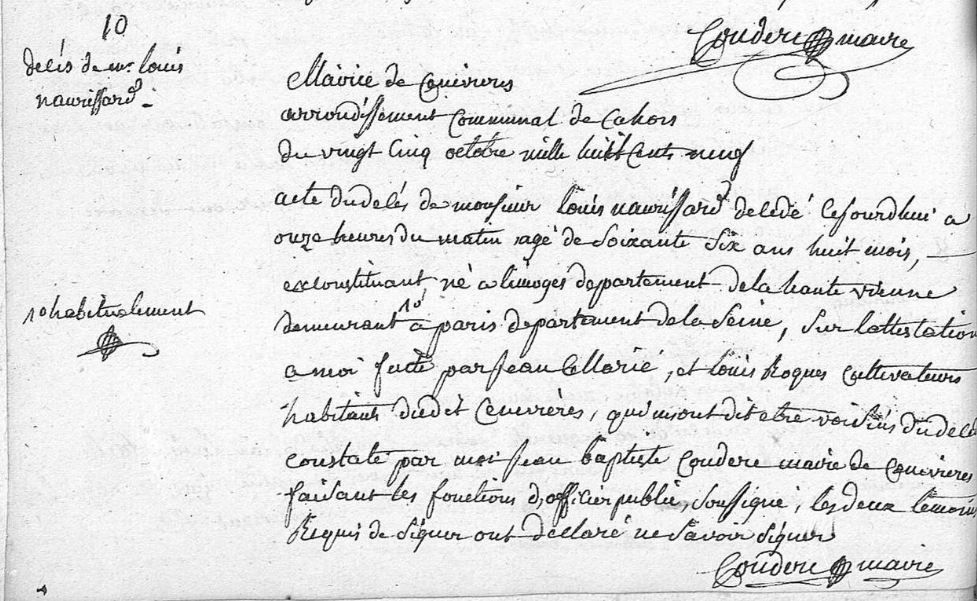 Couderc maire
10
delés de mr. louis
naurissard.
Mairie de Cenevieres
arrondissement Communal de Cahors
du vingt Cinq octobre mille huit Cents neuf
acte du delés de monsieur louis naurissard deledé Cejourdhui a
onze heures du matin agé de Soixante Six ans huit mois,
exconstituant, né a limoges departement de la haute vienne
demeurant 1o a paris departement de la Seine, Sur lattestation
1o habituellement
a moi faite par jean Cellarié, et louis Roques Cultivateurs
habitans dudit Ceneviéres, qui m'ont dit etre voisins du delé
constaté par moi jean baptiste Couderc maire de Cenevieres
faisant les fonctions d'officier public Soussigné, les deux temoins
Requis de Signer ont déclaré ne Savoir Signer
Couderc maire